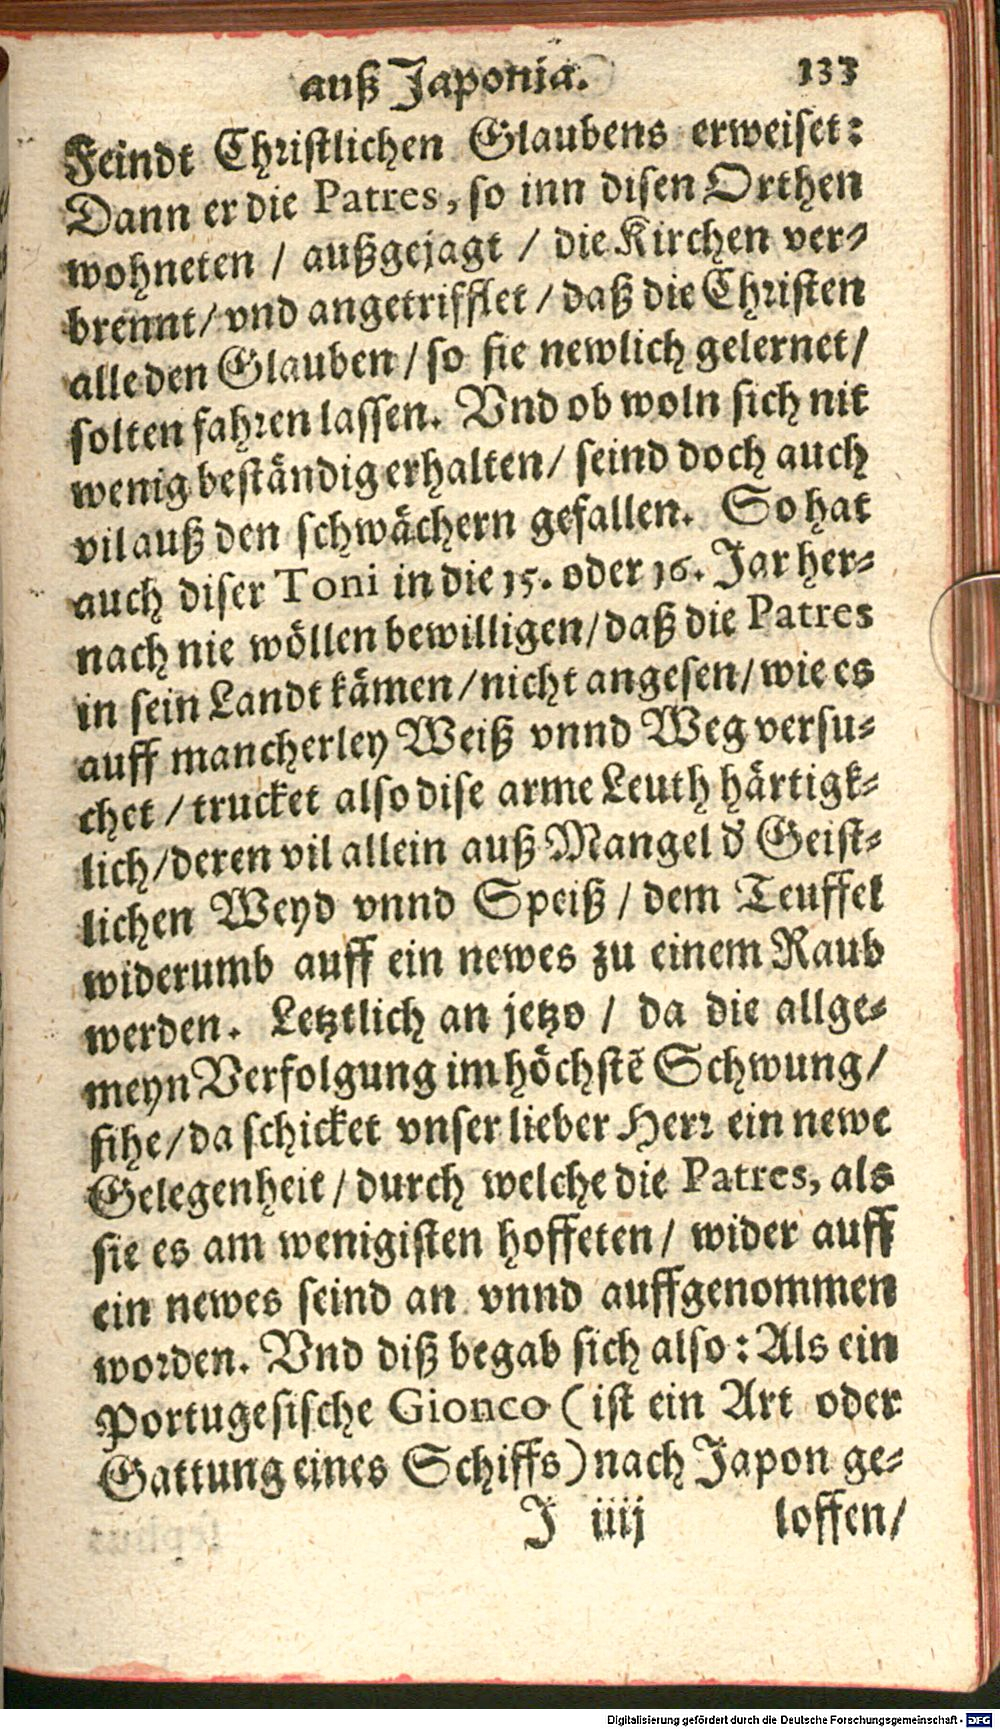 auß Japonia. 133
Feindt Christlichen Glaubens erweiset:
Dann er die Patres, so inn disen Orthen
wohneten / außgejagt / die Kirchen ver-
brennt / vnd angetrifflet / daß die Christen
alle den Glauben / so sie newlich gelernet /
solten fahren lassen. Vnd ob woln sich nit
wenig beständig erhalten / seind doch auch
vil auß den schwächern gefallen. So hat
auch diser Toni in die 15. oder 16. Jar her-
nach nie wöllen bewilligen / daß die Patres
in sein Landt kämen / nicht angesen / wie es
auff mancherley Weiß vnnd Weg versu-
chet / trucket also dise arme Leuth härtigk-
lich / deren vil allein auß Mangel d' Geist-
lichen Weyd vnnd Speiß / dem Teuffel
widerumb auff ein newes zu einem Raub
werden. Letztlich an jetzo / da die allge-
meyn Verfolgung im höchstē Schwung /
sihe / da schicket vnser lieber Herr ein newe
Gelegenheit / durch welche die Patres, als
sie es am wenigisten hoffeten / wider auff
ein newes seind an vnnd auffgenommen
worden. Vnd diß begab sich also: Als ein
Portugesische Gionco (ist ein Art oder
Gattung eines Schiffs) nach Japon ge-
J iiij loffen /
Digitalisierung gefördert durch die Deutsche Forschungsgemeinschaft - DFG